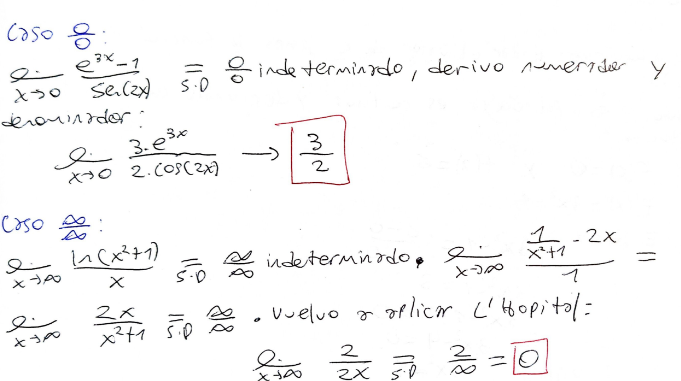 Caso 0/0:
lim x→0 (e^{3x} - 1)/(sen(2x)) =_{S.D} 0/0 indeterminado, derivo numerador y
denominador:
lim x→0 (3·e^{3x})/(2·cos(2x)) → 3/2
Caso ∞/∞:
lim x→∞ (ln(x²+1))/x =_{S.D} ∞/∞ indeterminado. lim x→∞ (1/(x²+1) · 2x)/1 =
lim x→∞ 2x/(x²+1) =_{S.D} ∞/∞. Vuelvo a aplicar L'Hopital:
lim x→∞ 2/2x =_{S.D} 2/∞ = 0